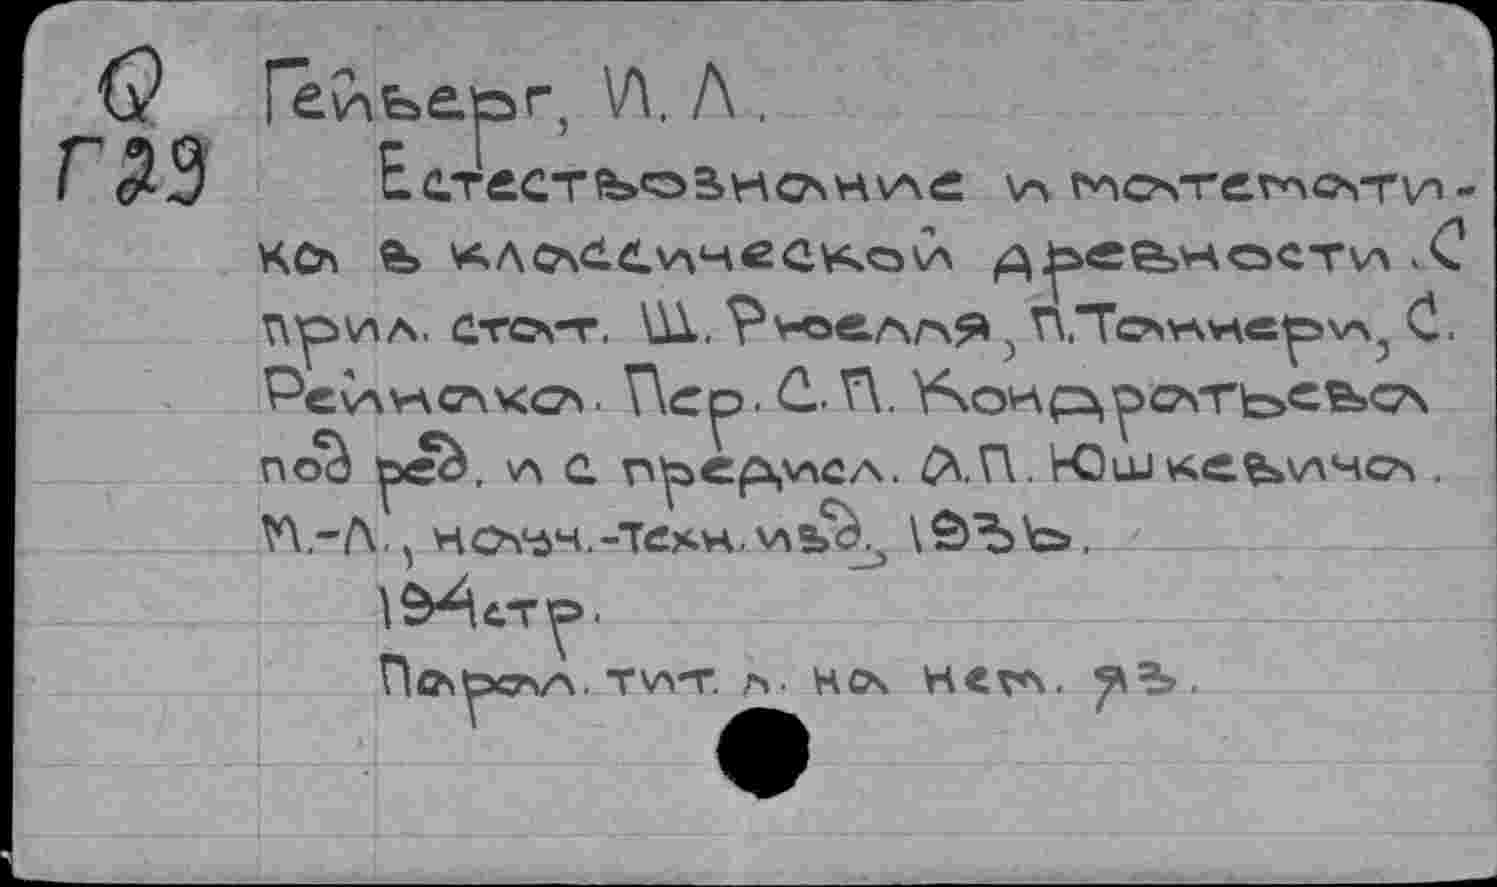 Q Гейберг, И. Л.
Г29 Естествознание и математи-
ка в классической древности. С
прил. стат. Ш. Рюелля, П. Таннери, С.
Рейнака. Пер. С. П. Кондратьева
под ред. и с предисл. А. П. Юшкевича.
М.-Л., науч.-техн. изд., 1936.
194 стр.
Парал. тит. л. на нем. яз.